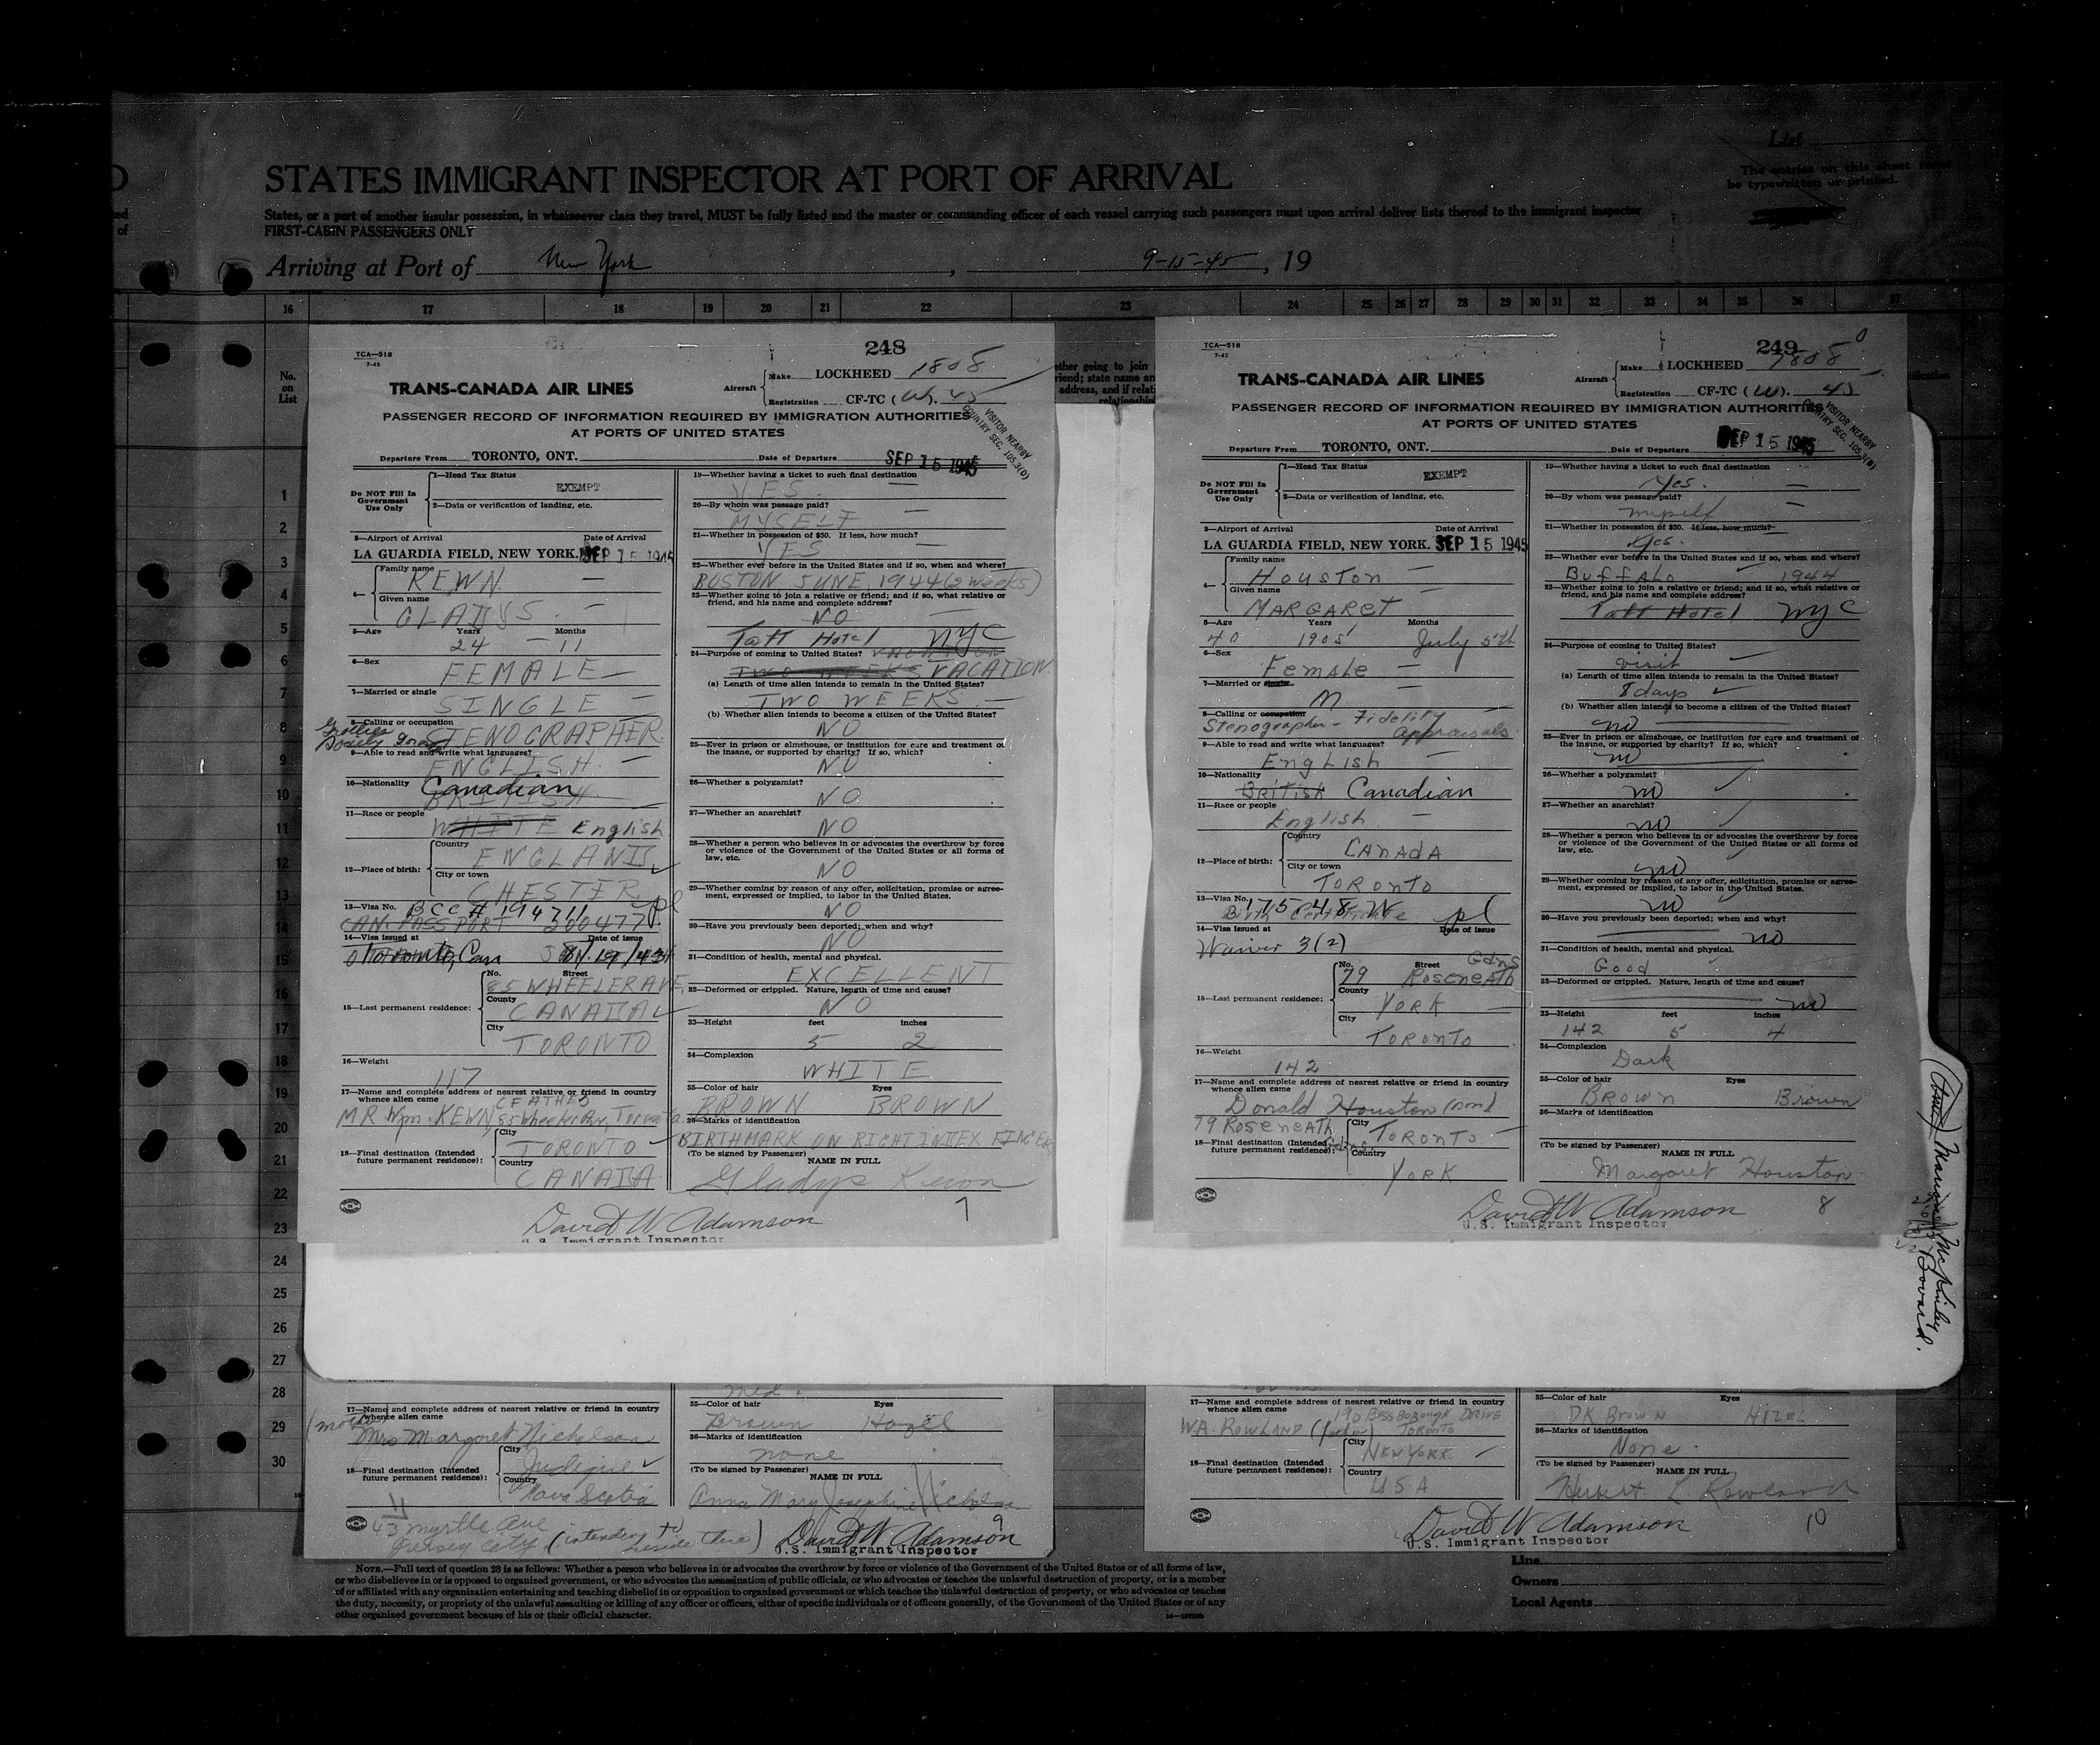 List
The entries on this sheet must
be typewritten or printed.
STATES IMMIGRANT INSPECTOR AT PORT OF ARRIVAL
States, or a port of another insular possession, in whatsoever class they travel, MUST be fully listed and the master or commanding officer of each vessel carrying such passengers must upon arrival deliver lists thereof to the immigrant inspector
FIRST-CABIN PASSENGERS ONLY
Arriving at Port of New York, 9-15-45, 19
16 17 18 19 20 21 22 23 24 25 26 27 28 29 30 31 32 33 34 35 36 37
No.
on
List
1
2
3
4
5
6
7
8
9
10
11
12
13
14
15
16
17
18
19
20
21
22
23
24
25
26
27
28
29
30
TCA—518
7-45
248
TRANS-CANADA AIR LINES
Aircraft
Make LOCKHEED 1808
Registration CF-TC (W). 45
PASSENGER RECORD OF INFORMATION REQUIRED BY IMMIGRATION AUTHORITIES
AT PORTS OF UNITED STATES
VISITOR NEARBY
COUNTRY SEC. 105.3(D)
Departure From TORONTO, ONT. Date of Departure SEP 15 1945
Do NOT Fill In
Government
Use Only
1—Head Tax Status
EXEMPT
2—Data or verification of landing, etc.
3—Airport of Arrival Date of Arrival
LA GUARDIA FIELD, NEW YORK. SEP 15 1945
4— Family name
KEWN
Given name
GLADYS
5—Age Years Months
24 11
6—Sex
FEMALE
7—Married or single
SINGLE
8—Calling or occupation
STENOGRAPHER
9—Able to read and write what languages?
ENGLISH
10—Nationality Canadian
BRITISH
11—Race or people
WHITE English
12—Place of birth:
Country
ENGLAND
City or town
CHESTER
13—Visa No. BCC # 194711
CAN. PASSPORT 360477
14—Visa issued at Date of issue
15—Last permanent residence:
No. Street
85 WHEELER AVE.
County
CANADA
City
TORONTO
16—Weight
117
17—Name and complete address of nearest relative or friend in country
whence alien came
MR Wm. KEWN, 85 Wheeler Av, Toronto
18—Final destination (Intended
future permanent residence):
City
TORONTO
Country
CANADA
19—Whether having a ticket to such final destination
YES
20—By whom was passage paid?
MYSELF
21—Whether in possession of $50. If less, how much?
YES
22—Whether ever before in the United States and if so, when and where?
BOSTON JUNE, 1944 (2 weeks)
23—Whether going to join a relative or friend; and if so, what relative or
friend, and his name and complete address?
NO
Taft Hotel NYC
24—Purpose of coming to United States? VACATION
TWO WEEKS VACATION
(a) Length of time alien intends to remain in the United States?
TWO WEEKS
(b) Whether alien intends to become a citizen of the United States?
NO
25—Ever in prison or almshouse, or institution for care and treatment of
the insane, or supported by charity? If so, which?
NO
26—Whether a polygamist?
NO
27—Whether an anarchist?
NO
28—Whether a person who believes in or advocates the overthrow by force
or violence of the Government of the United States or all forms of
law, etc.
NO
29—Whether coming by reason of any offer, solicitation, promise or agree-
ment, expressed or implied, to labor in the United States.
NO
30—Have you previously been deported; when and why?
NO
31—Condition of health, mental and physical.
EXCELLENT
32—Deformed or crippled. Nature, length of time and cause?
NO
33—Height feet inches
5 2
34—Complexion
WHITE
35—Color of hair Eyes
BROWN BROWN
36—Marks of identification
BIRTHMARK ON RIGHT INDEX FINGER
(To be signed by Passenger) NAME IN FULL
Gladys Kewn
7
David W Adamson
U.S. Immigrant Inspector
TCA—518
7-45
249
TRANS-CANADA AIR LINES
Aircraft
Make LOCKHEED 1808
Registration CF-TC (W). 45
PASSENGER RECORD OF INFORMATION REQUIRED BY IMMIGRATION AUTHORITIES
AT PORTS OF UNITED STATES
VISITOR NEARBY
COUNTRY SEC. 105.3(D)
Departure From TORONTO, ONT. Date of Departure SEP 15 1945
Do NOT Fill In
Government
Use Only
1—Head Tax Status
EXEMPT
2—Data or verification of landing, etc.
3—Airport of Arrival Date of Arrival
LA GUARDIA FIELD, NEW YORK. SEP 15 1945
4— Family name
HOUSTON
Given name
MARGARET
5—Age Years Months
40 1905 July 5th
6—Sex
Female
7—Married or single
M
8—Calling or occupation
Stenographer - Fidelity Appraisals
9—Able to read and write what languages?
English
10—Nationality
British Canadian
11—Race or people
English
12—Place of birth:
Country
CANADA
City or town
TORONTO
13—Visa No. 17548 W
Birth Certificate pl
14—Visa issued at Date of issue
Waiver 3(2)
15—Last permanent residence:
No. Street
79 Roseneath Gdns
County
YORK
City
TORONTO
16—Weight
142
17—Name and complete address of nearest relative or friend in country
whence alien came
Donald Houston (son)
79 Roseneath Gdns
18—Final destination (Intended
future permanent residence):
City
TORONTO
Country
YORK
19—Whether having a ticket to such final destination
Yes.
20—By whom was passage paid?
myself
21—Whether in possession of $50. If less, how much?
Yes.
22—Whether ever before in the United States and if so, when and where?
Buffalo 1944
23—Whether going to join a relative or friend; and if so, what relative or
friend, and his name and complete address?
Taft Hotel NYC
24—Purpose of coming to United States?
visit
(a) Length of time alien intends to remain in the United States?
8 days
(b) Whether alien intends to become a citizen of the United States?
no
25—Ever in prison or almshouse, or institution for care and treatment of
the insane, or supported by charity? If so, which?
no
26—Whether a polygamist?
no
27—Whether an anarchist?
no
28—Whether a person who believes in or advocates the overthrow by force
or violence of the Government of the United States or all forms of
law, etc.
no
29—Whether coming by reason of any offer, solicitation, promise or agree-
ment, expressed or implied, to labor in the United States.
no
30—Have you previously been deported; when and why?
no
31—Condition of health, mental and physical.
Good
32—Deformed or crippled. Nature, length of time and cause?
no
33—Height feet inches
142 5 4
34—Complexion
Dark
35—Color of hair Eyes
Brown Brown
36—Marks of identification
(To be signed by Passenger) NAME IN FULL
Margaret Houston
8
David W Adamson
U.S. Immigrant Inspector
med.
17—Name and complete address of nearest relative or friend in country
whence alien came
(mother) Mrs Margaret Nicholson
18—Final destination (Intended
future permanent residence):
City
Judique
Country
Nova Scotia
35—Color of hair Eyes
Brown Hazel
36—Marks of identification
none
(To be signed by Passenger)
NAME IN FULL
Anna Mary Josephine Nicholson
43 Myrtle Ave
Jersey City (intending to reside there)
9
David W Adamson
U.S. Immigrant Inspector
17—Name and complete address of nearest relative or friend in country
whence alien came
190 Bessborough DRIVE
W.A. ROWLAND (father) TORONTO
18—Final destination (Intended
future permanent residence):
City
NEW YORK
Country
USA
35—Color of hair Eyes
DK BROWN HAZEL
36—Marks of identification
None.
(To be signed by Passenger)
NAME IN FULL
Hubert L Rowland
10
David W Adamson
U.S. Immigrant Inspector
NOTE.—Full text of question 28 is as follows: Whether a person who believes in or advocates the overthrow by force or violence of the Government of the United States or of all forms of law,
or who disbelieves in or is opposed to organized government, or who advocates the assassination of public officials, or who advocates or teaches the unlawful destruction of property, or is a member
of or affiliated with any organization entertaining and teaching disbelief in or opposition to organized government or which teaches the unlawful destruction of property, or who advocates or teaches
the duty, necessity, or propriety of the unlawful assaulting or killing of any officer or officers, either of specific individuals or of officers generally, of the Government of the United States or of any
other organized government because of his or their official character.
Line
Owners
Local Agents